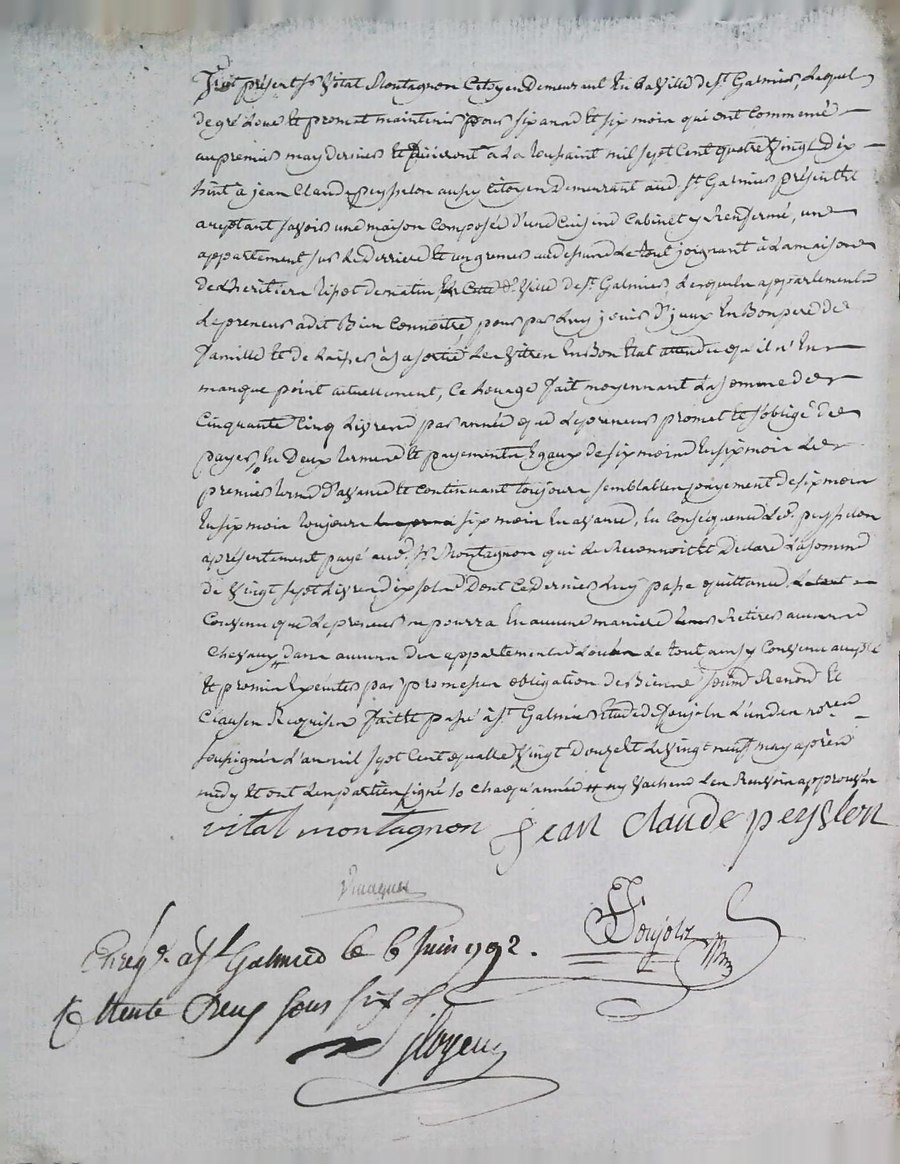 fut présent Sr Vital Montagnon Citoyen Demeurant En la Ville de St Galmier, Lequel
de gré Loue Et promet maintenir pour six anné Et six mois qui ont Commencé
au premier may dernier Et finiront a La toussaint mil sept Cent quatre Vingt Dix
huit a jean Claude peysselon aussy Citoyen Demeurant aud. St Galmier présent Et
aceptant savoir une maison Composée d'une Cuisine Cabinet y Renfermé, une
appartement sur Le derriere Et un grenier au dessus Le tout joignant à La maison
de L'heritiere de matin, de St Galmier, Lesquels appartements
Le preneur a dit Bien Connoitre pour par Luy jouir D'yceux En Bon pere de
famille Et de Laisser à sa sortie Les Vitres En Bon Etat attendu qu'il n'En
manque point actuellement, Ce Louage fait moyennant La somme de
Cinquante Cinq Livres par année que Le preneur promet Et s'oblige de
payer, En Deux termes Et payements Egaux de six mois En six mois Le
premier terme D'avance Et Continuant toujours semblables payement de six mois
En six mois toujours six mois En avance, En Conséquence Led. peysselon
a présentement payé aud. Sr Montagnon qui Le Reconnoit Et Declare La somme
de Vingt sept Livres dix sols Dont Ce dernier Luy passe quittance
Convenu que Le preneur ne pourra En aucune maniere Retirer aucuns
Chevaux dans aucuns des appartements Loués Le tout ainsy Convenu
Et promis Exécuter par promesses obligation de Biens
Clauses Requises fait Et passé à St Galmier Etude de foujols L'un des no.res
soussignés L'an mil sept Cent quattre Vingt Douze Et Le Vingt neuf may après
midy Et ont Les parties signé chaqu'année Les Renvois approuvés
vital montagnon jean claude peysslon
foujols
Enrég.é à St Galmier le 6 juin 1792.
R trente Deux sous six d.